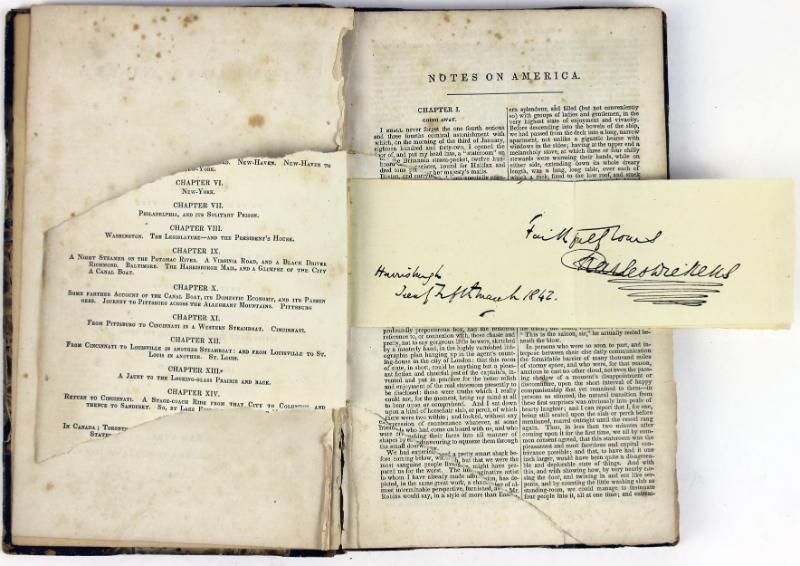 ROAD. NEW-HAVEN. NEW-HAVEN TO
NEW-YORK.
CHAPTER VI.
NEW-YORK.
CHAPTER VII.
PHILADELPHIA, AND ITS SOLITARY PRISON.
CHAPTER VIII.
WASHINGTON. THE LEGISLATURE—AND THE PRESIDENT'S HOUSE.
CHAPTER IX.
A NIGHT STEAMER ON THE POTOMAC RIVER. A VIRGINIA ROAD, AND A BLACK DRIVER
RICHMOND. BALTIMORE. THE HARRISBURGH MAIL, AND A GLIMPSE OF THE CITY
A CANAL BOAT.
CHAPTER X.
SOME FARTHER ACCOUNT OF THE CANAL BOAT, ITS DOMESTIC ECONOMY, AND ITS PASSEN
GERS. JOURNEY TO PITTSBURG ACROSS THE ALLEGHANY MOUNTAINS. PITTSBURG
CHAPTER XI.
FROM PITTSBURG TO CINCINNATI IN A WESTERN STEAMBOAT. CINCINNATI.
CHAPTER XII.
FROM CINCINNATI TO LOUISVILLE IN ANOTHER STEAMBOAT: AND FROM LOUISVILLE TO ST.
LOUIS IN ANOTHER. ST. LOUIS.
CHAPTER XIII.
A JAUNT TO THE LOOKING-GLASS PRAIRIE AND BACK.
CHAPTER XIV.
RETURN TO CINCINNATI. A STAGE-COACH RIDE FROM THAT CITY TO COLUMBUS, AND
THENCE TO SANDUSKY. SO, BY LAKE
IN CANADA; TORONTO
STATES
NOTES ON AMERICA.
CHAPTER I.
GOING AWAY.
I SHALL never forget the one fourth serious
and three fourths comical astonishment with
which, on the morning of the third of January,
eighteen hundred and forty-two, I opened the
of, and put my head into, a "stateroom" on
the Britannia steam-packet, twelve hun
dred tons
her majesty's mails.
splendour, and filled (but not conveniently
so) with groups of ladies and gentlemen, in the
very highest state of enjoyment and vivacity.
Before descending into the bowels of the ship,
we had passed from the deck into a long, narrow
apartment, not unlike a gigantic hearse with
windows in the sides; having at the upper end a
melancholy stove, at which three or four chilly
stewards were warming their hands, while on
either side, extending down its whole dreary
length, was a long, long table, over each of
which a rack, fixed to the low roof, and stuck
Faithfully Yours
Charles Dickens
Harrisburgh
March 1842.
profoundly preposterous box, had the remotest
reference to, or connexion with, those chaste and
pretty, not to say gorgeous little bowers, sketched
by a masterly hand, in the highly varnished lith-
ographic plan hanging up in the agent's count-
ing-house in the city of London: that this room
of state, in short, could be anything but a pleas-
ant fiction and cheerful jest of the captain's, in-
vented and put in practice for the better relish
and enjoyment of the real stateroom presently to
be disclosed: these were truths which I really
could not, for the moment, bring my mind at all
to bear upon or comprehend. And I sat down
upon a kind of horsehair slab, or perch, of which
there were two within; and looked, without any
expression of countenance whatever, at some
friends who had come on board with us, and who
were crushing their faces into all manner of
shapes by endeavouring to squeeze them through
the small doorway.
We had experienced a pretty smart shock be-
fore coming below, which, but that we were the
most sanguine people living, might have pre-
pared us for the worst. The imaginative artist
to whom I have already made allusion, has de-
picted, in the same great work, a chamber of al-
most interminable perspective, furnished, as Mr.
Robins would say, in a style of more than Eastern
"This is the saloon, sir," he actually reeled be-
neath the blow.
In persons who were so soon to part, and in-
terpose between their else daily communication
the formidable barrier of many thousand miles
of stormy space, and who were, for that reason,
anxious to cast no other cloud, not even the pass-
ing shadow of a moment's disappointment or
discomfiture, upon the short interval of happy
companionship that yet remained to them—in
persons so situated, the natural transition from
these first surprises was obviously into peals of
hearty laughter; and I can report that I, for one,
being still seated upon the slab or perch before
mentioned, roared outright until the vessel rang
again. Thus, in less than two minutes after
coming upon it for the first time, we all by com-
mon consent agreed, that this stateroom was the
pleasantest and most facetious and capital con-
trivance possible; and that, to have had it one
inch larger, would have been quite a disagreea-
ble and deplorable state of things. And with
this, and with showing how, by very nearly clo-
sing the door, and twining in and out like ser-
pents, and by counting the little washing slab as
standing-room, we could manage to insinuate
four people into it, all at one time; and entreat-